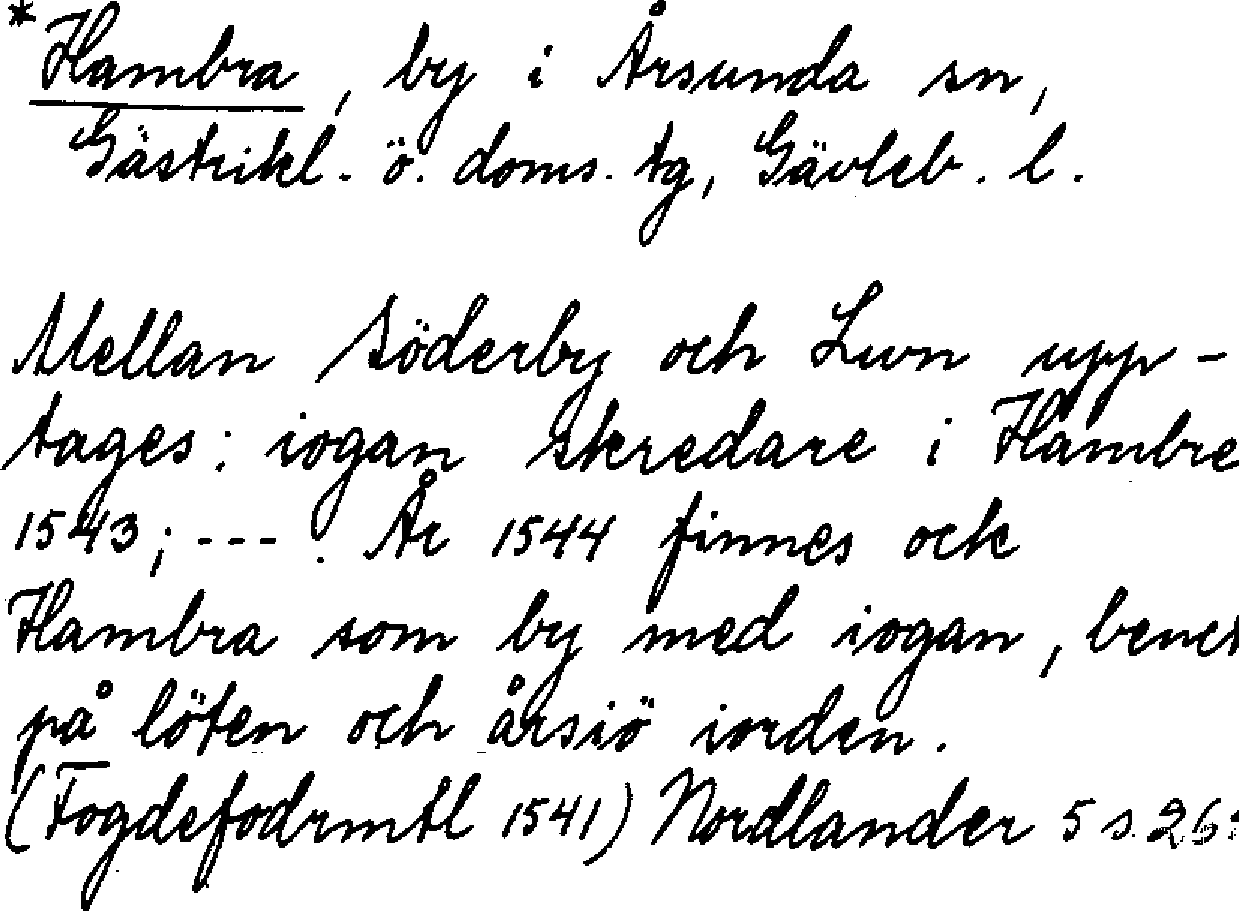 *Hambra, by i Årsunda sn,
Gästrikl. ö. doms. tg, Gävleb. l.
Mellan Söderby och Lund upp-
tages: iogan skredare i Hambre
1543; ---. År 1544 finnes ock
Hambra som by med iogan,
på löten och årsiö iorden.
(Fogdefodrmtl 1541) Nordlander 5 s.